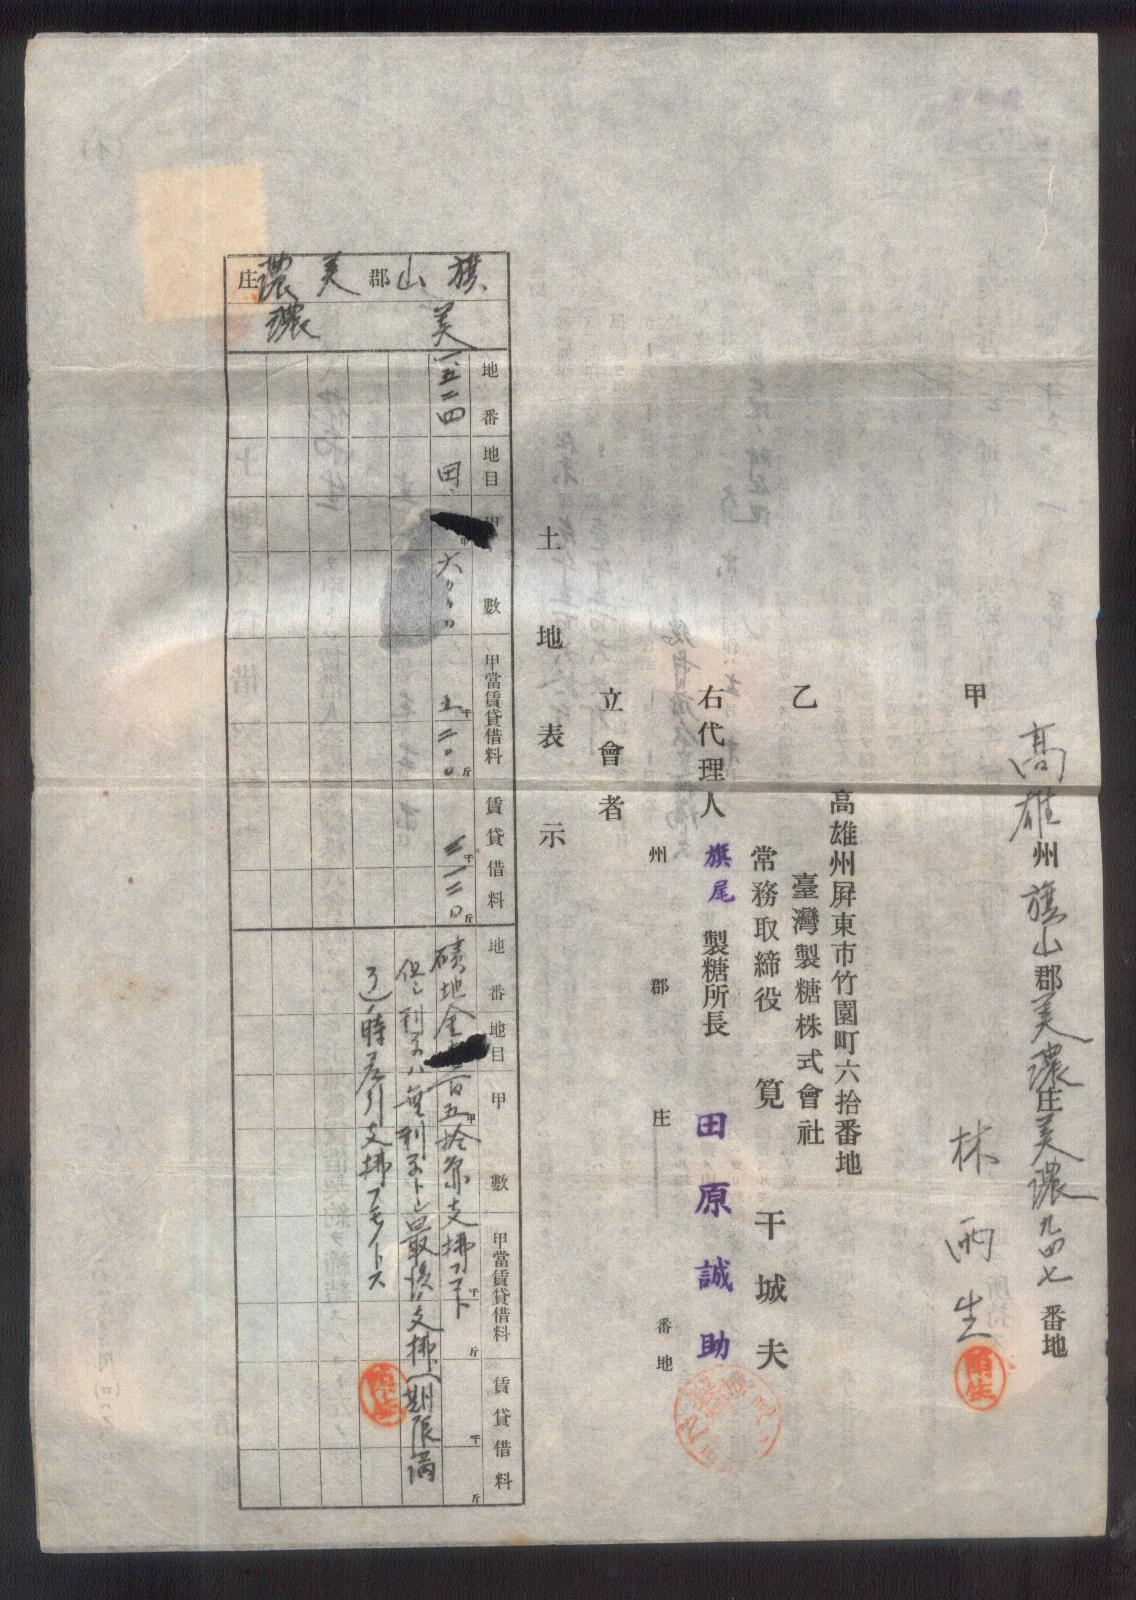 高雄州旗山郡美濃庄美濃九四七番地
甲 林雨生
高雄州屏東市竹園町六拾番地
乙 臺灣製糖株式會社
常務取締役 筧干城夫
右代理人 旗尾製糖所長 田原誠助
州 郡 庄 番地
立會者
土地表示
旗山郡美濃庄
美濃
地番 地目 甲數 甲當賃貸借料 賃貸借料 地番 地目 甲數 甲當賃貸借料 賃貸借料
一五二四 田
磧地金 百五拾 支拂フコト
但シ利子ハ無利子トシ最後ノ支拂 期限満
時差引支拂フモノトス
雨生
雨生